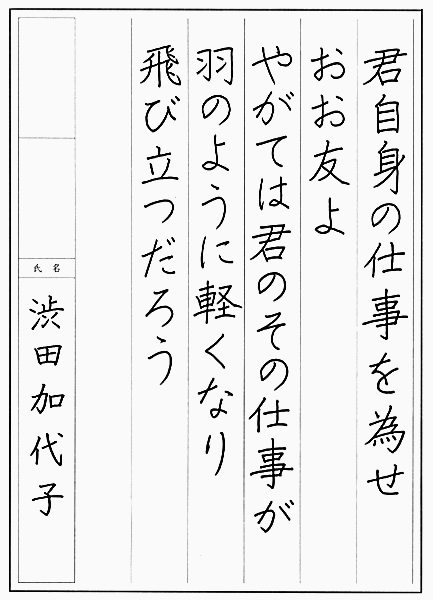 君自身の仕事を為せ
おお友よ
やがては君のその仕事が
羽のように軽くなり
飛び立つだろう
氏名
渋田加代子